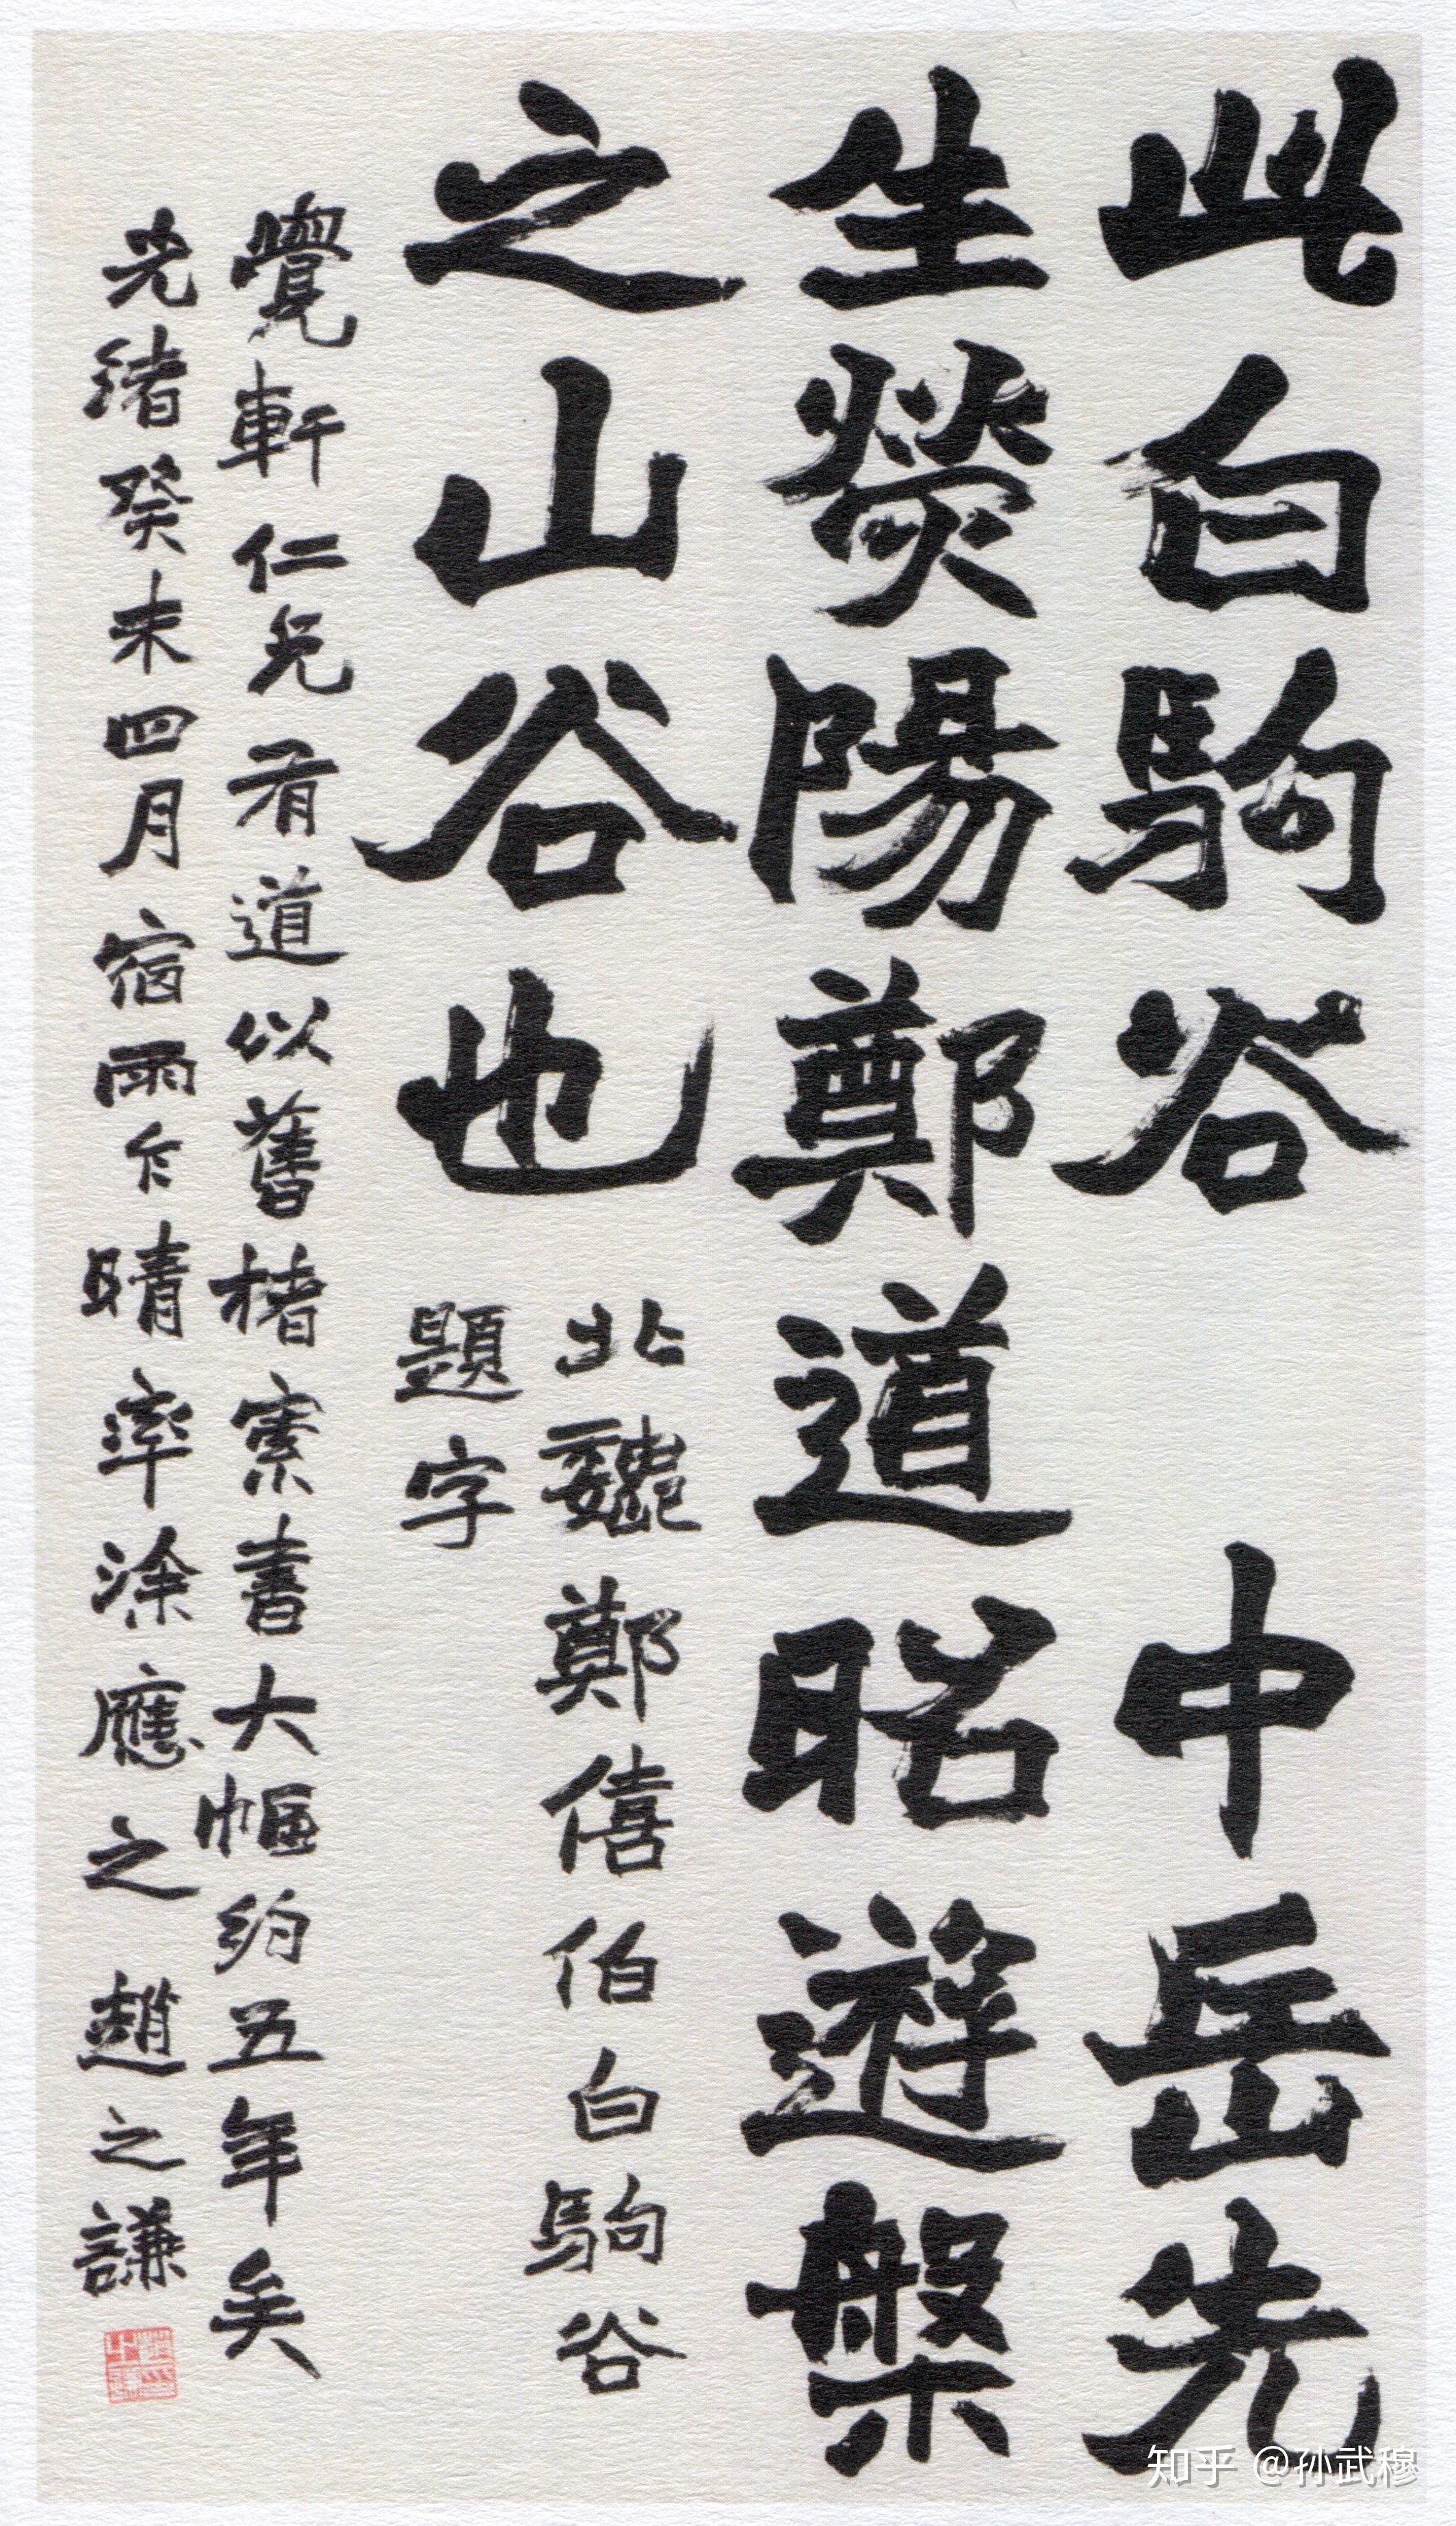 此白駒谷　中岳先
生熒陽鄭道昭遊槃
之山谷也
北魏鄭僖伯白駒谷
題字
覺軒仁兄有道以舊楮索書大幅約五年矣
光緒癸未四月宿雨乍晴率涂應之趙之謙
知乎 @孙武穆